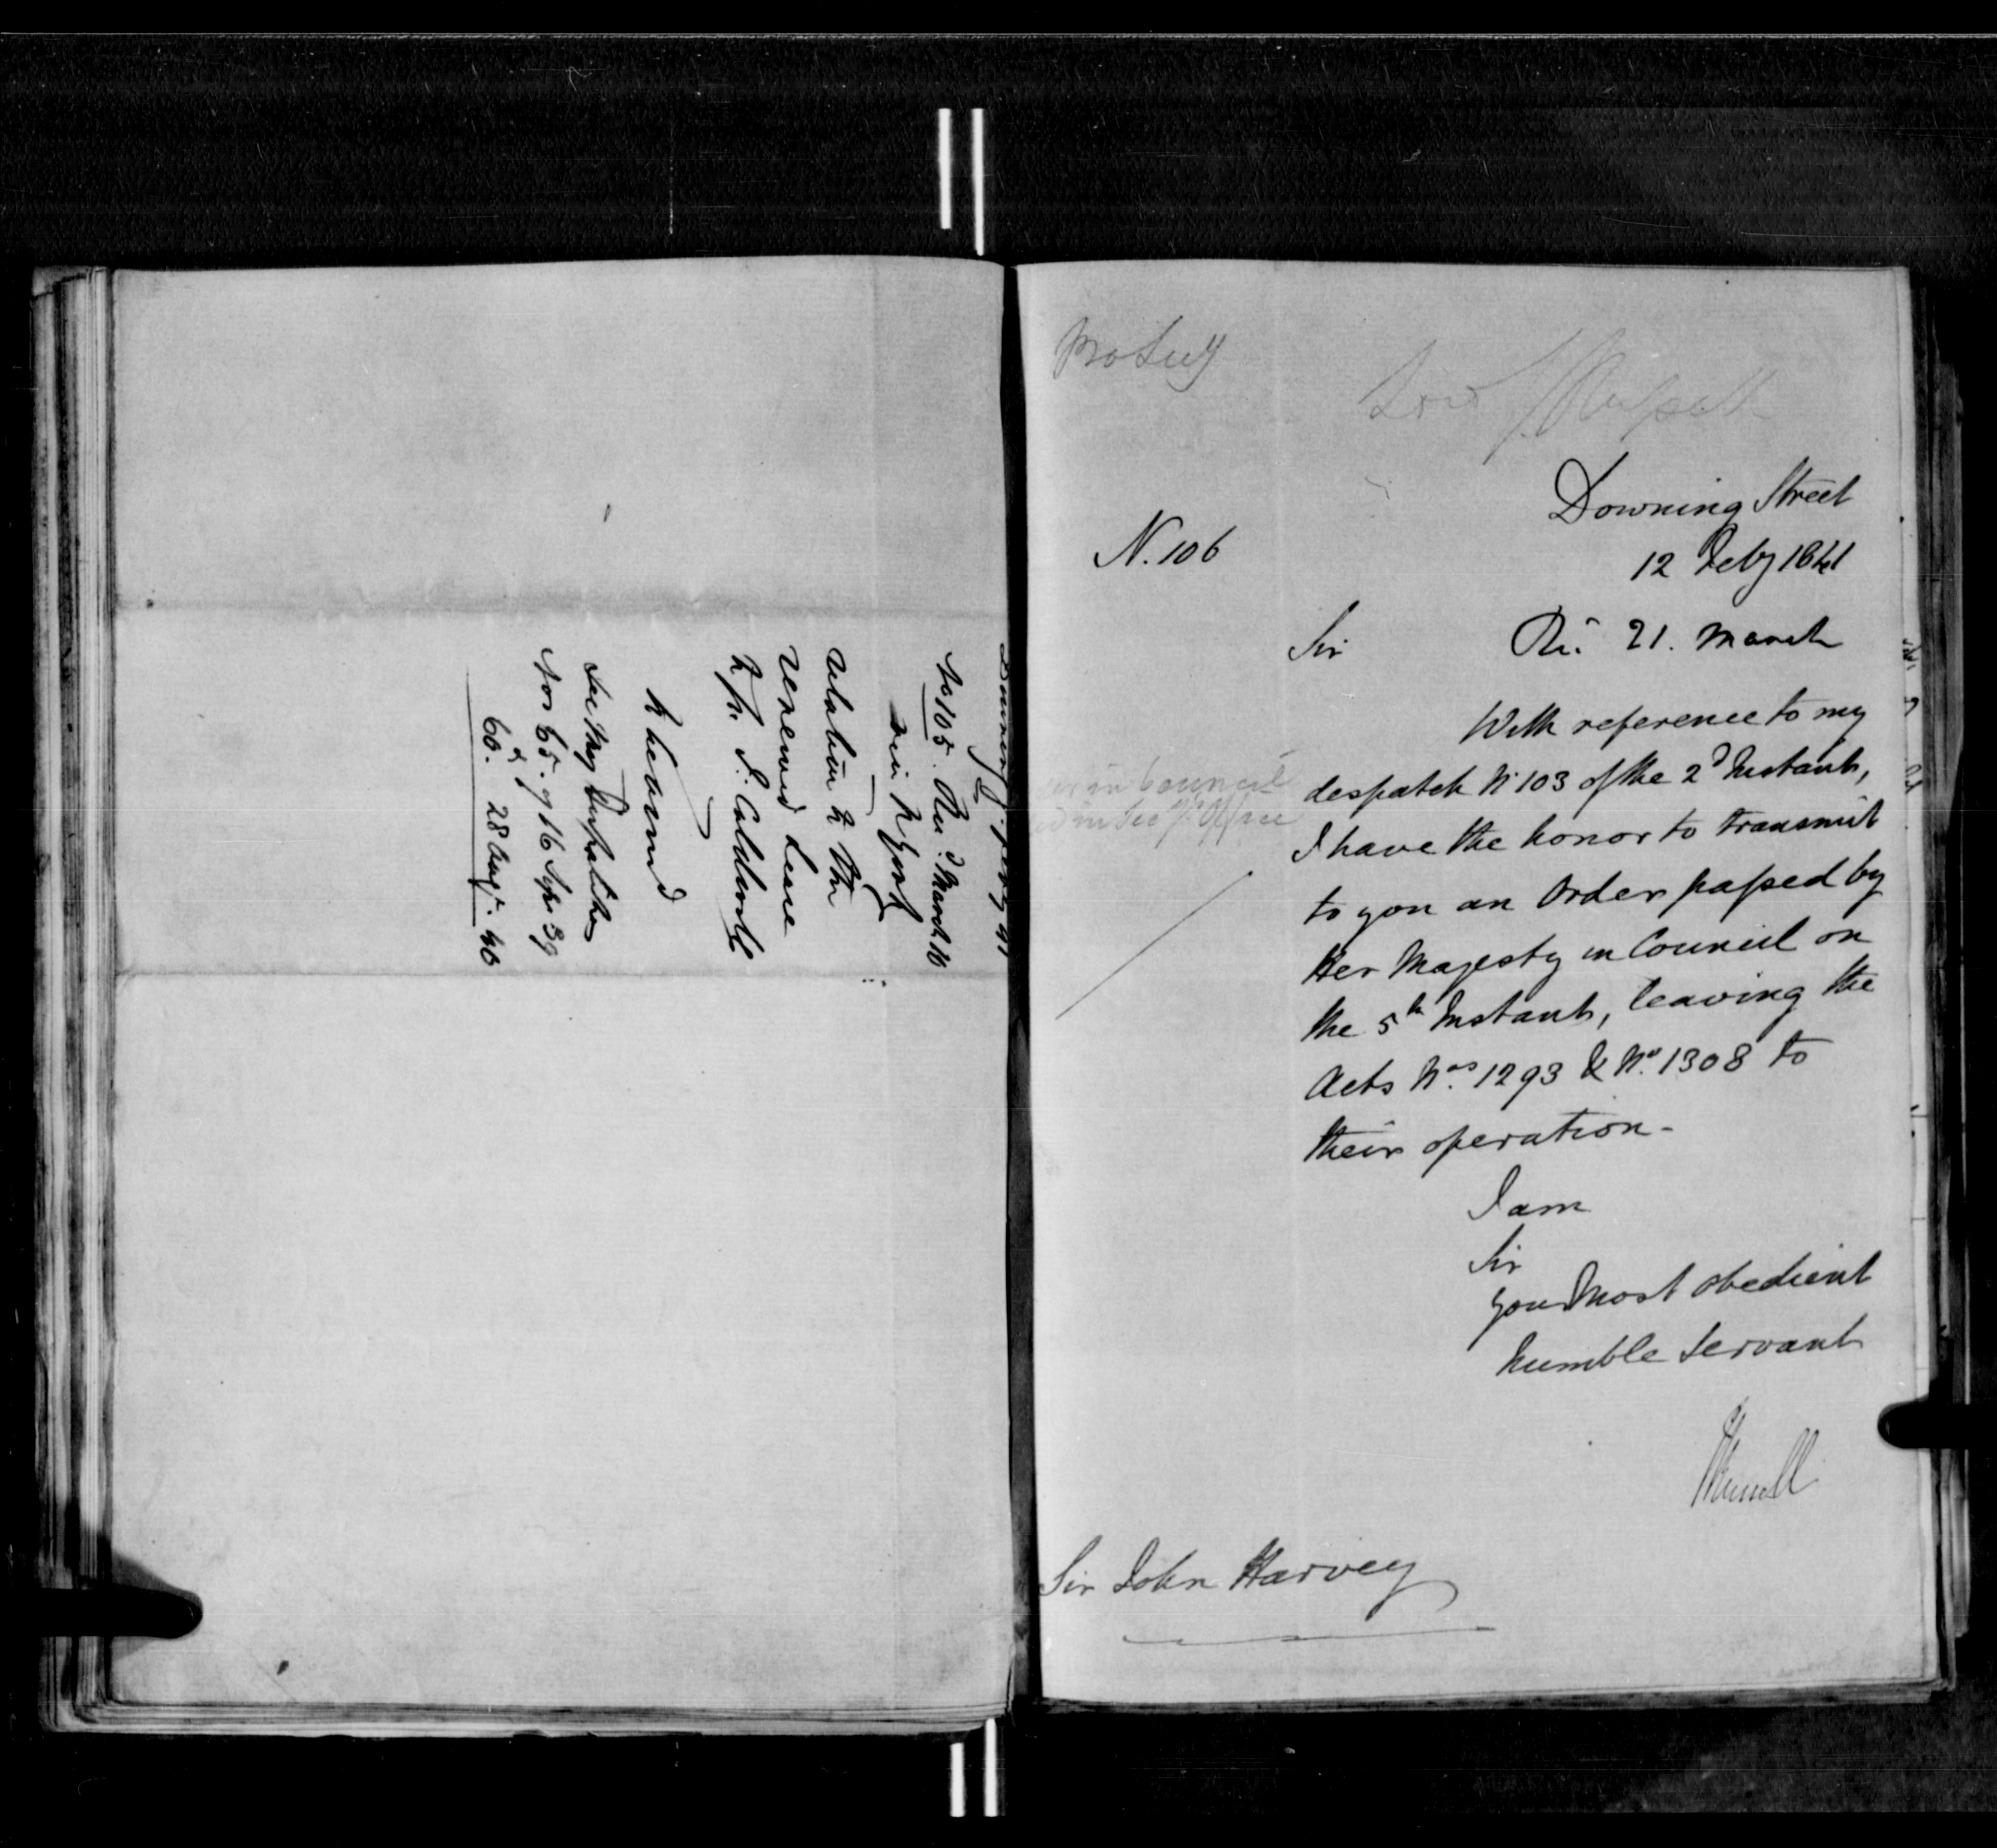 No 105. Recd March 16
via N York
relation to the
renewed Lease
to Mr. S.
See My Despatches
Nos 65. of 16 Sepr 39
&
60. 28 Augt. 40
Lord J. Russell
Downing Street
N. 106
12 Feby 1841
Sir
Rec. 21. March
With reference to my
despatch No 103 of the 2d Instant,
in Council
in Office
I have the honor to transmit
to you an Order passed by
Her Majesty in Council on
the 5th Instant, leaving the
Acts Nos. 1293 & No. 1308 to
their operation-
I am
Sir
your most obedient
humble Servant
J Russell
Sir John Harvey